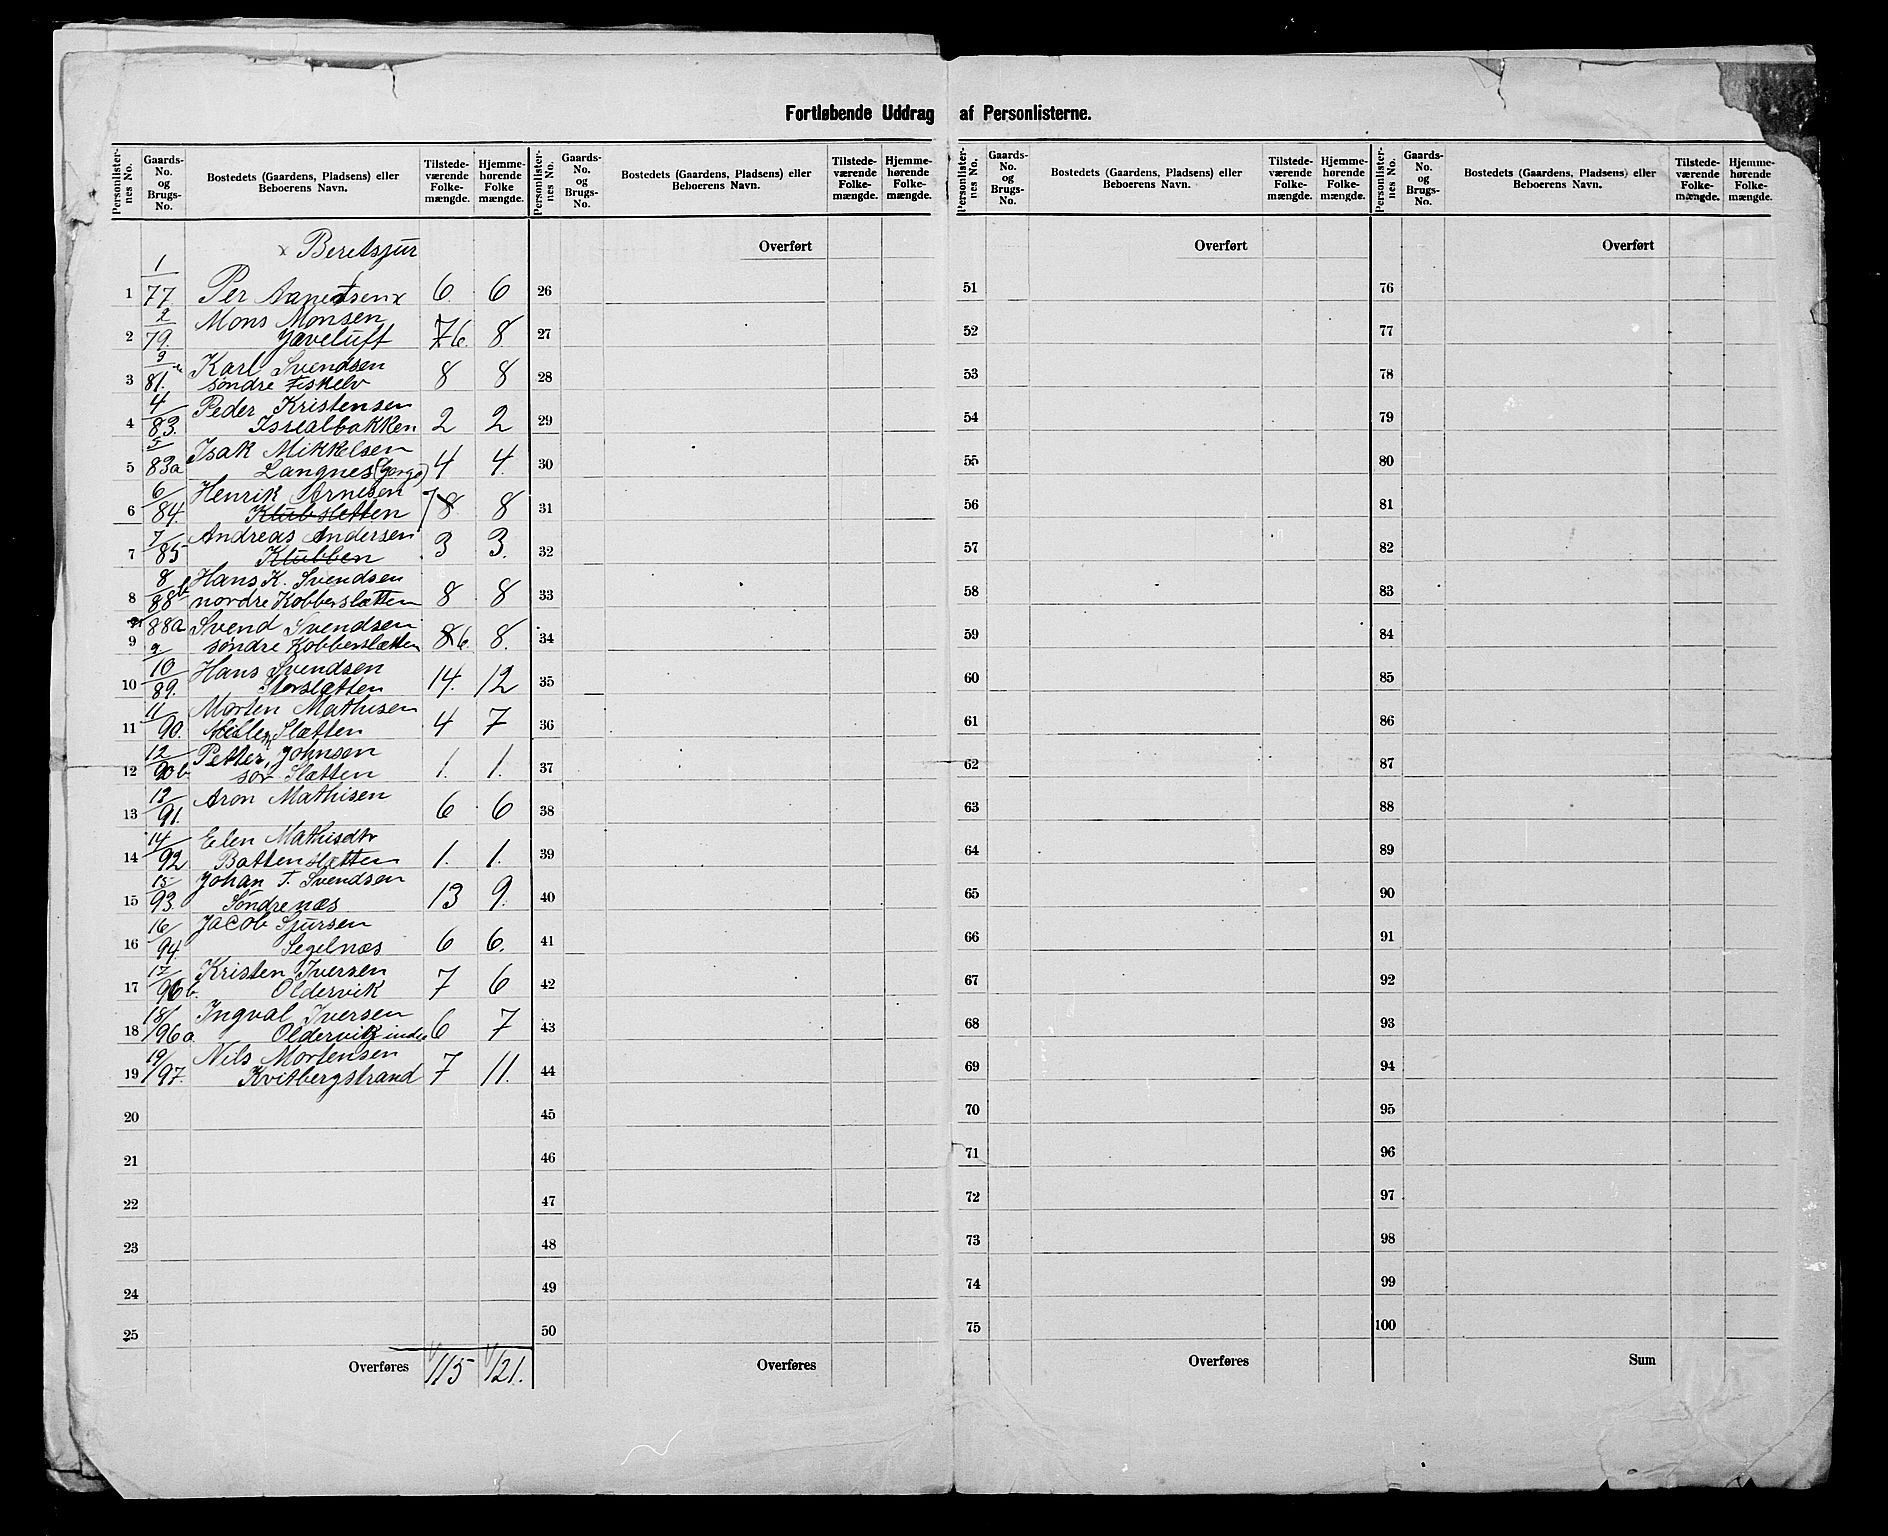 Fortløbende Uddrag af Personlisterne.
Personlister-nes No. Gaards-No. og Brugs-No. Bostedets (Gaardens, Pladsens) eller Beboerens Navn. Tilstede-værende Folke-mængde. Hjemme-hørende Folke mængde.
Personlister-nes No. Gaards-No. og Brugs-No. Bostedets (Gaardens, Pladsens) eller Beboerens Navn. Tilstede-værende Folke-mængde. Hjemme-hørende Folke-mængde.
Personlister-nes No. Gaards-No. og Brugs-No. Bostedets (Gaardens, Pladsens) eller Beboerens Navn. Tilstede-værende Folke-mængde. Hjemme-hørende Folke-mængde.
Personlister-nes No. Gaards-No. og Brugs-No. Bostedets (Gaardens, Pladsens) eller Beboerens Navn. Tilstede-værende Folke-mængde. Hjemme-hørende Folke-mængde.
x Beretsjur
1 1/77. Per 6. 6
2 2/79. Mons Monsen 7 6. 8.
Javeluft
3 3/81. Karl Svendsen 8 8
søndre Fiskelv
4 4/83. Peder Kristensen 2 2
Isrealbakken
5 5/83a Isak Mikkelsen 4 4.
Langnes
6 6/84. Henrik Arnesen 7 8 8
Klubsletten
7 7/85 Andreas Andersen 3 3.
Klubben
8 8/88b Hans K. Svendsen 8 8
nordre Kobberslætten
9 88a 9/ Svend Svendsen 8 6. 8.
søndre Kobberslætten
10 10/89. Hans Svendsen 14. 12
Storslætten
11 11/90. Morten Mathisen 4 7
Slætten
12 12/90b Petter Johnsen 1. 1.
sør Slætten
13 13/91. Aron Mathisen 6 6
14 14/92 Elen Mathisdtr 1. 1.
Battenslætten
15 15/93. Johan T. Svendsen 13 9.
Søndrenæs
16 16/94. Jacob Sjursen 6 6.
Segelnæs
17 17/96b. Kristen Iversen 7 6
Oldervik
18 18/96a Ingval Iversen 6 7
Oldervik indre
19 19/97. Nils Mortensen 7 11.
Kvitbergstrand
20
21
22
23
24
25
Overføres 115 121.
Overført
26
27
28
29
30
31
32
33
34
35
36
37
38
39
40
41
42
43
44
45
46
47
48
49
50
Overføres
Overført
51
52
53
54
55
56
57
58
59
60
61
62
63
64
65
66
67
68
69
70
71
72
73
74
75
Overføres
Overført
76
77
78
79
80
81
82
83
84
85
86
87
88
89
90
91
92
93
94
95
96
97
98
99
100
Sum